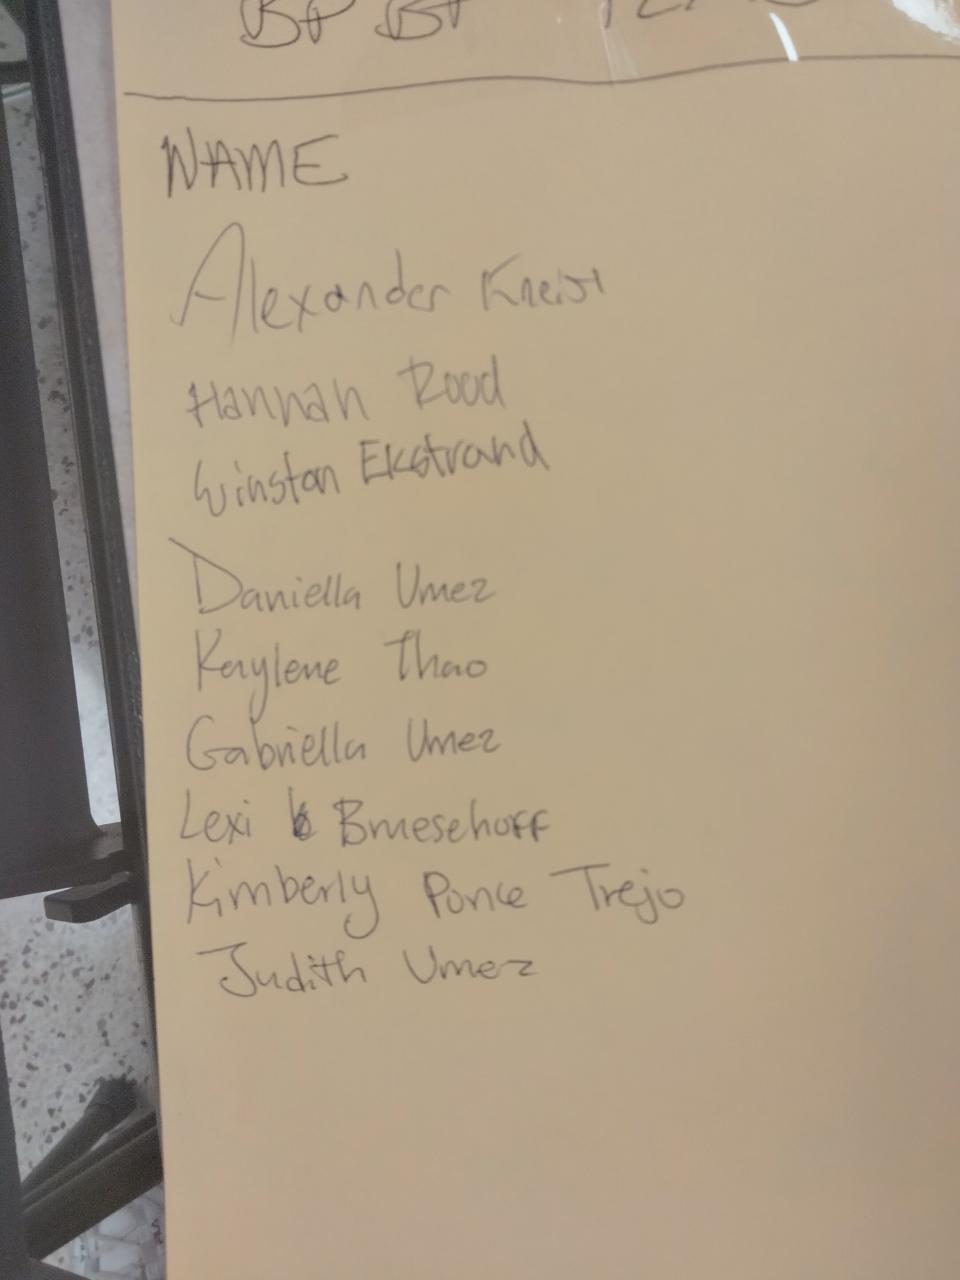 NAME
Alexander Kneist
Hannah Rood
Winston Ekstrand
Daniella Umez
Kaylene Thao
Gabriella Umez
Lexi Bruesehoff
Kimberly Ponce Trejo
Judith Umez